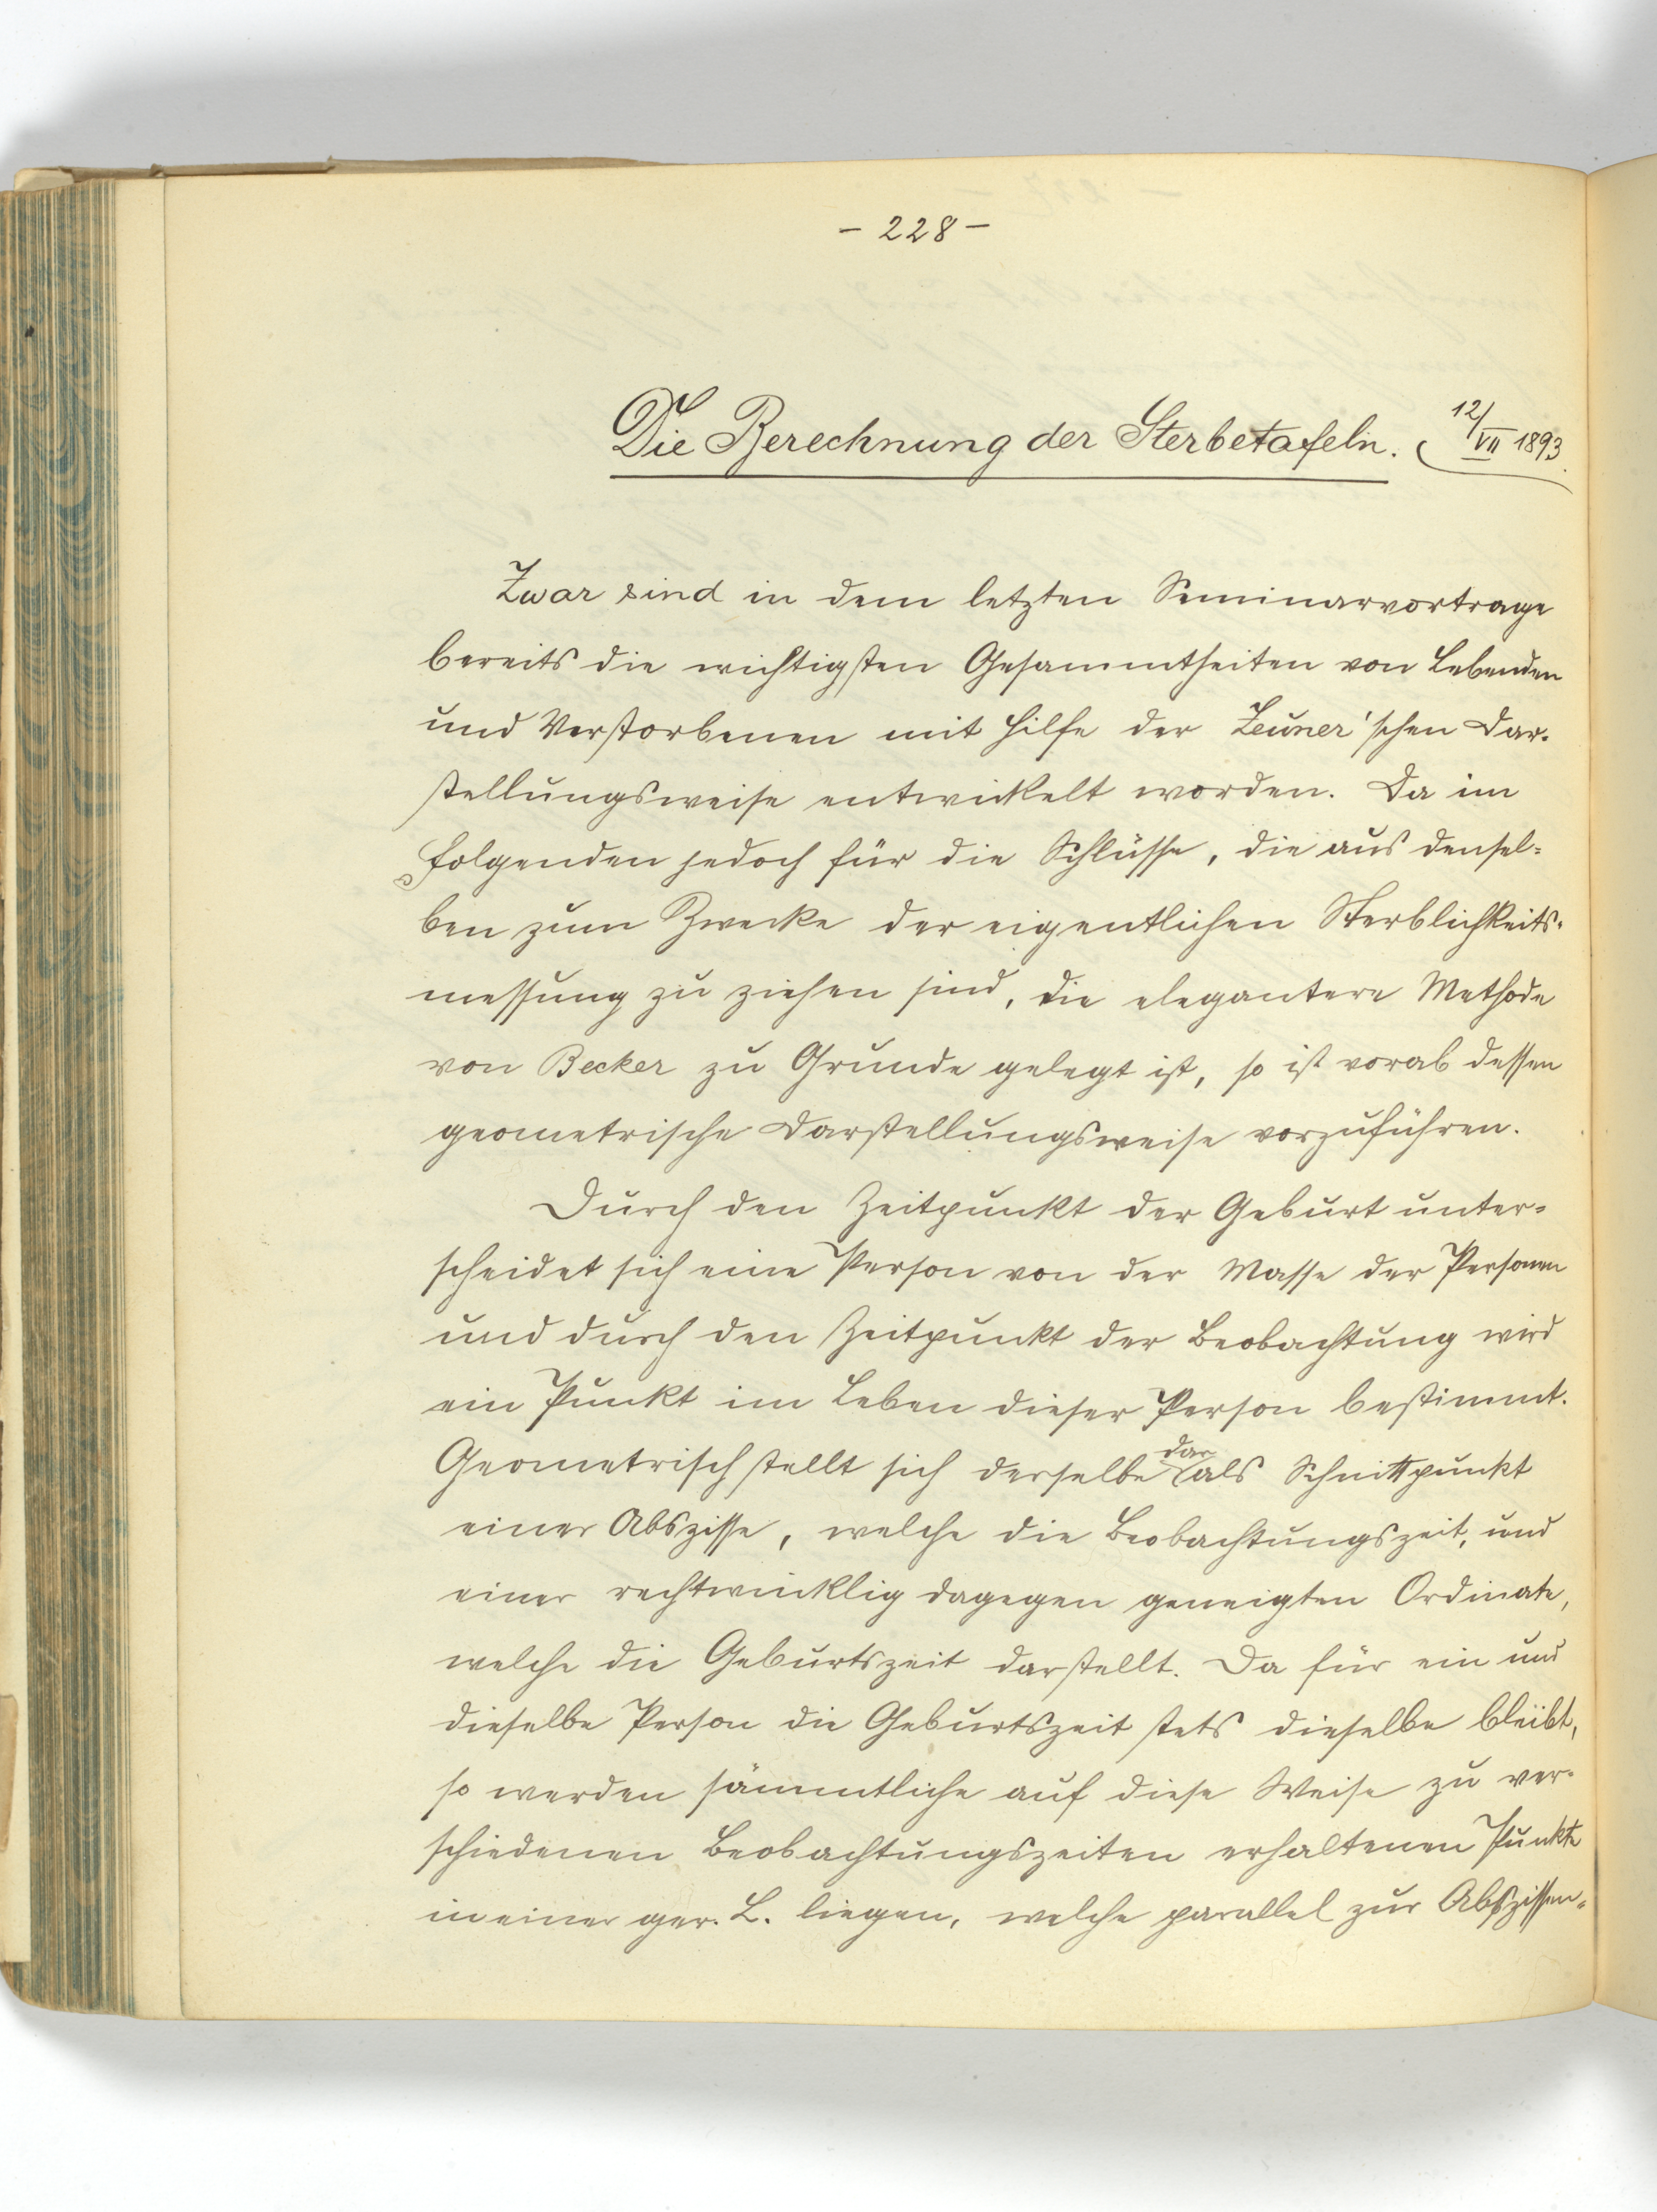 - 228 -
Die Berechnung der Sterbetafeln. (12/VII 1893.
Zwar sind in dem letzten Seminarvortrage
bereits die wichtigsten Gesammtheiten von Lebenden
und Verstorbenen mit Hilfe der Zeuner'schen Dar-
stellungsweise entwickelt worden. Da im
Folgenden jedoch für die Schlüsse, die aus densel-
ben zum Zwecke der eigentlichen Sterblichkeits-
messung zu ziehen sind, die elegantere Methode
von Becker zu Grunde gelegt ist, so ist vorab dessen
geometrische Darstellungsweise vorzuführen.
Durch den Zeitpunkt der Geburt unter-
scheidet sich eine Person von der Masse der Personen
und durch den Zeitpunkt der Beobachtung wird
ein Punkt im Leben dieser Person bestimmt.
Geometrisch stellt sich derselbe dar als Schnittpunkt
einer Abszisse, welche die Beobachtungszeit, und
einer rechtwinklig dagegen geneigten Ordinate,
welche die Geburtszeit darstellt. Da für ein und
dieselbe Person die Geburtszeit stets dieselbe bleibt,
so werden sämmtliche auf diese Weise zu ver-
schiedenen Beobachtungszeiten erhaltenen Punkte
in einer ger. L. liegen, welche parallel zur Abszissen-